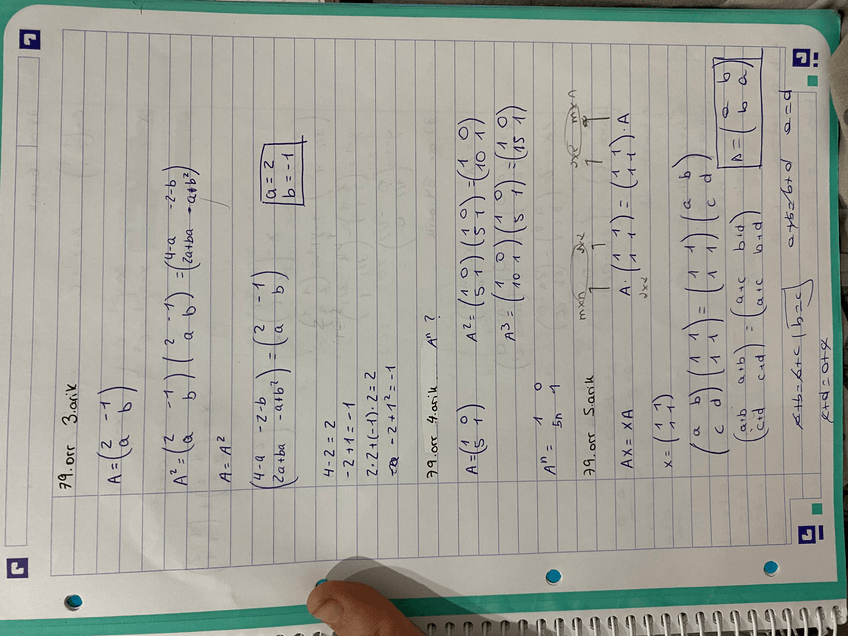 79.orr 3.arik
A = (2 -1
a b)
A² = (2 -1
a b) (2 -1
a b) = (4-a -2-b
2a+ba -a+b²)
A = A²
(4-a -2-b
2a+ba -a+b²) = (2 -1
a b)
a = 2
b = -1
4-2=2
-2+1=-1
2·2+(-1)·2=2
-2+1²=-1
79.orr 4.arik Aⁿ ?
A = (1 0
5 1)
A² = (1 0
5 1) (1 0
5 1) = (1 0
10 1)
A³ = (1 0
10 1) (1 0
5 1) = (1 0
15 1)
Aⁿ = 1 0
5n 1
79.orr 5.arik
mxn 2x2
2x2 mxn
AX = XA
A · (1 1
1 1) = (1 1
1 1) · A
2x2
x = (1 1
1 1)
(a b
c d) (1 1
1 1) = (1 1
1 1) (a b
c d)
(a+b a+b
c+d c+d) = (a+c b+d
a+c b+d)
A = (a b
b a)
a+b=a+c b=c a+b=b+d a=d
c+d=a+c